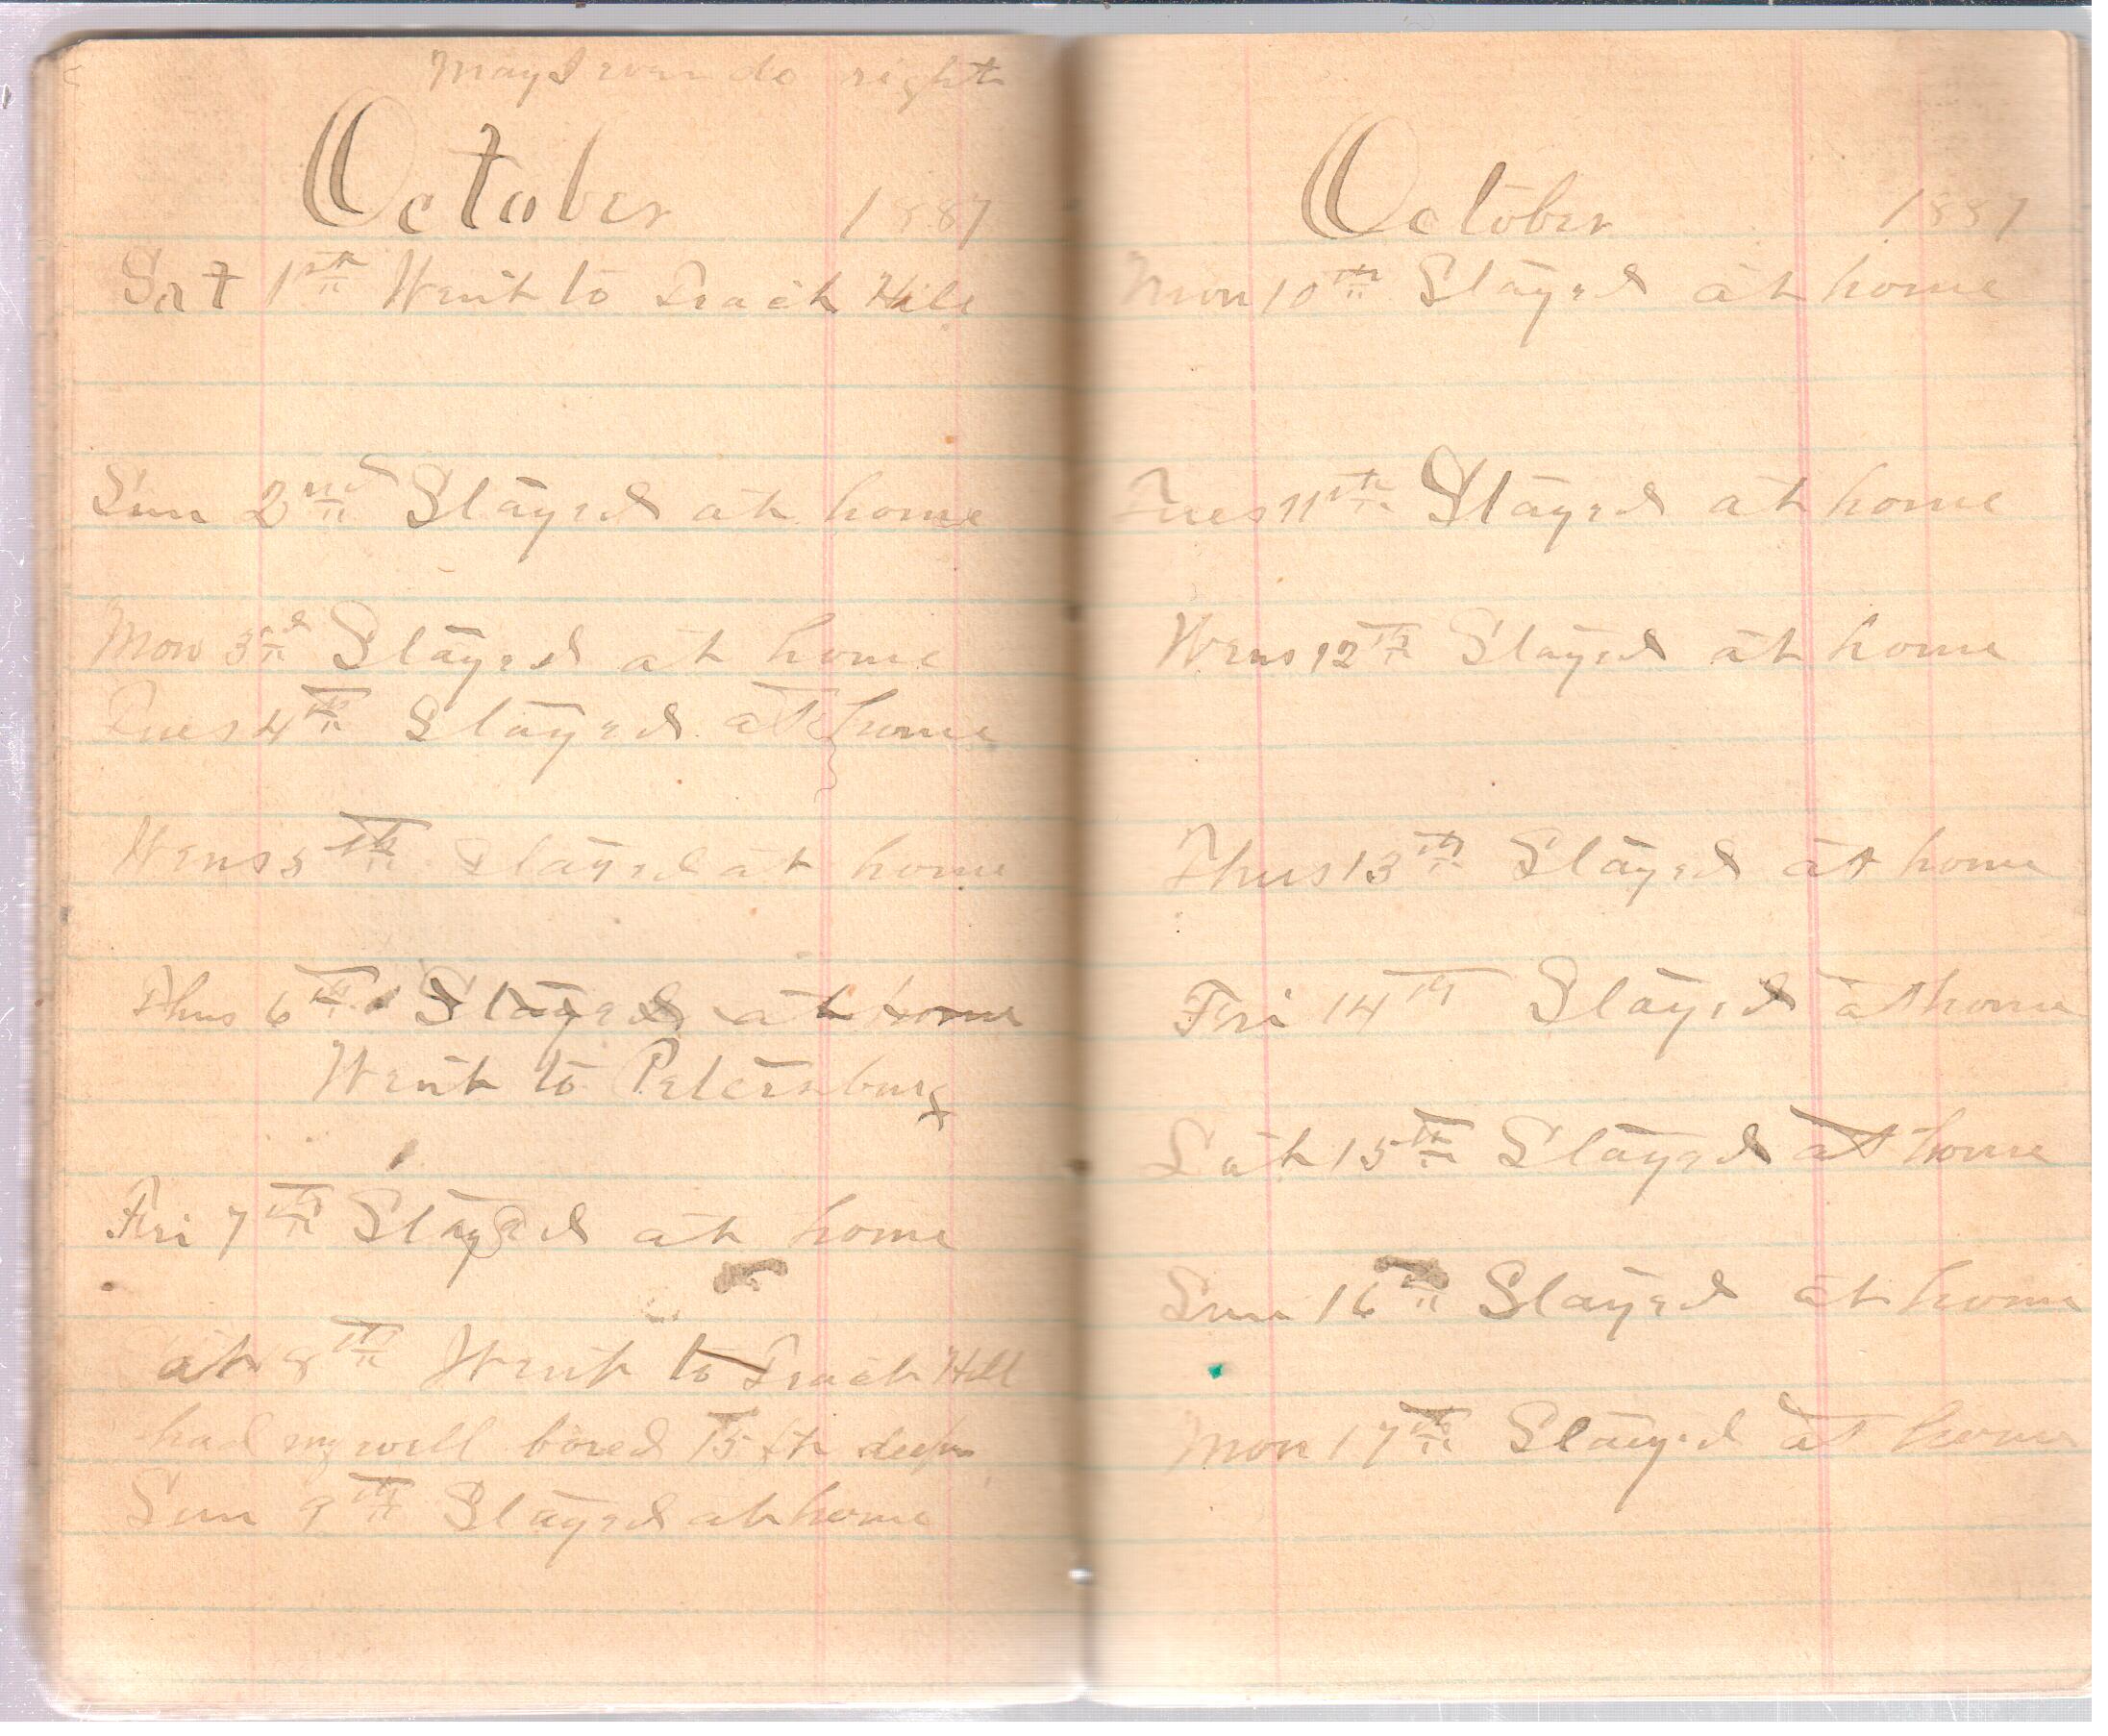 May I ever do right
October 1887
Sat 1st Went to Peach Hill
Sun 2nd Stayed at home
Mon 3rd Stayed at home
Tues 4th Stayed at home
Wens 5th Stayed at home
Thus 6th Stayed at home
Went to Petersburg
Fri 7th Stayed at home
at 8th Went to Peach Hill
had my well bored 15 ft deep
Sun 9th Stayed at home
October 1887
Mon 10th Stayed at home
Tues 11th Stayed at home
Wens 12th Stayed at home
Thus 13th Stayed at home
Fri 14th Stayed at home
Sat 15th Stayed at home
Sun 16th Stayed at home
Mon 17th Stayed at home